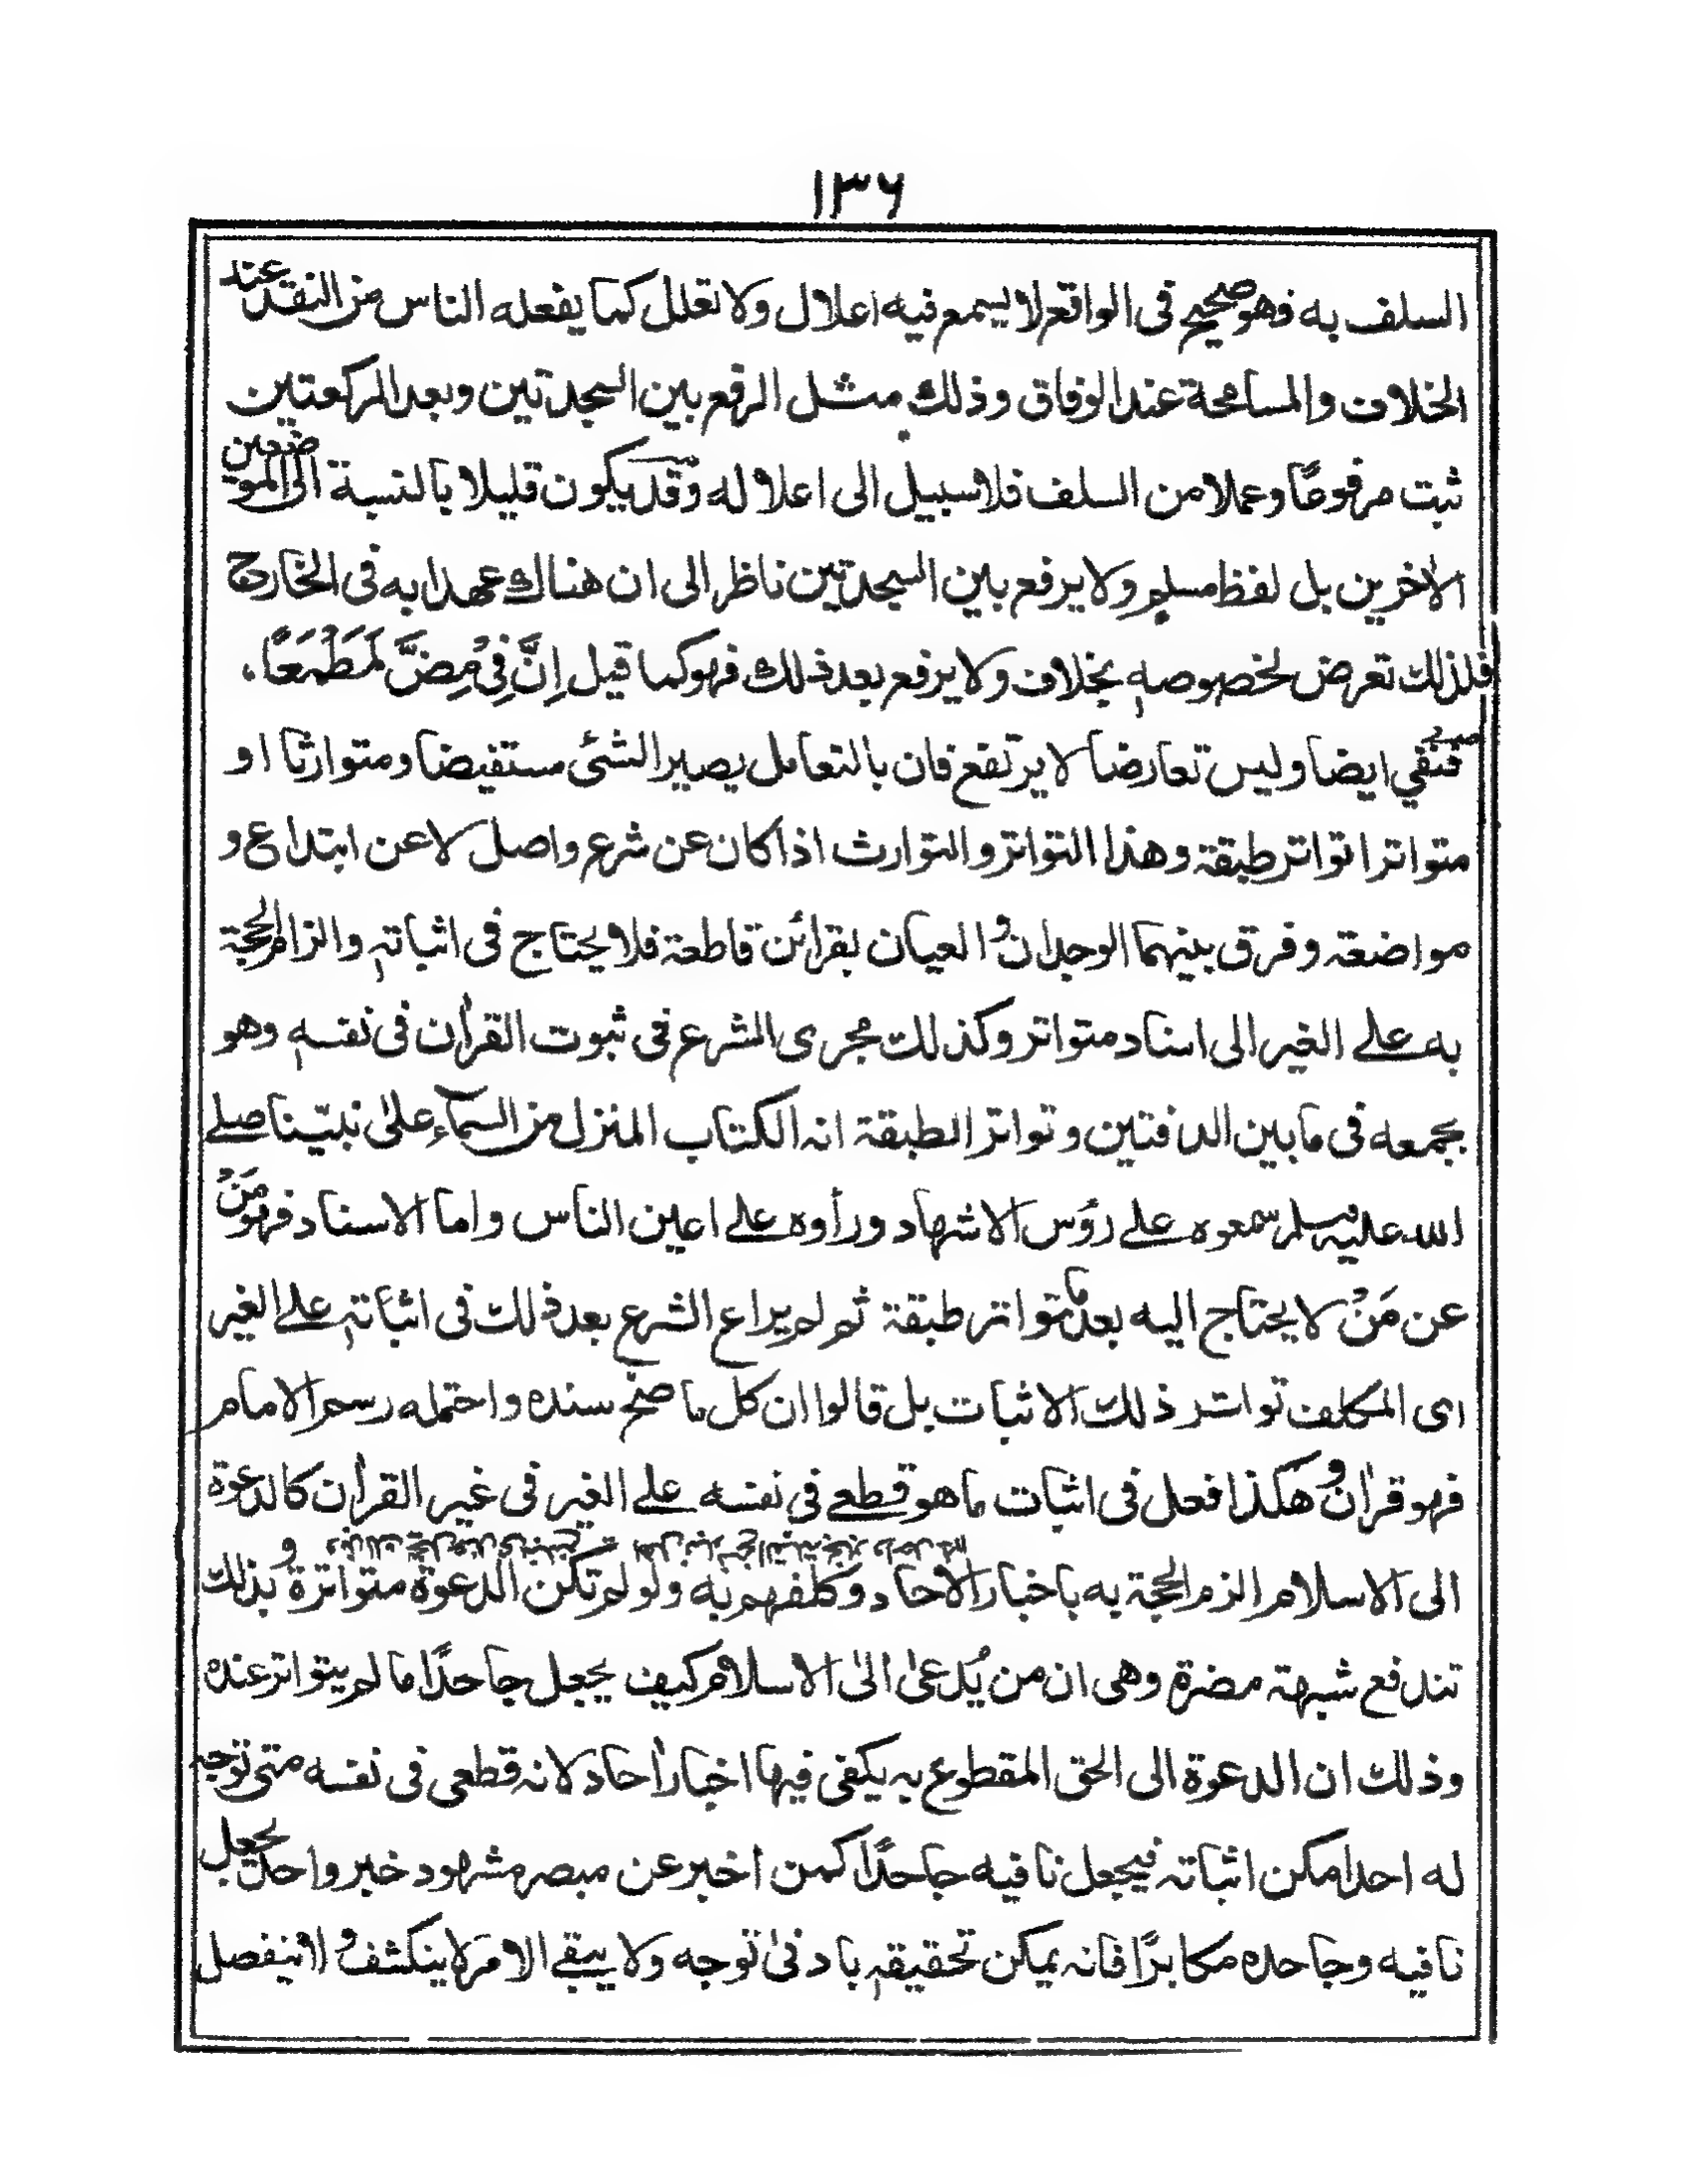 ١٣٦
السلف به فهو صحيح فى الواقع لا يسمع فيه اعلال ولا تعلل كما يفعله الناس من النقد عند
الخلاف والمسامحة عند الوفاق وذلك مثل الرفع بين السجدتين وبعد الركعتين
ثبت مرفوعًا وعملا من السلف فلا سبيل الى اعلاله وقد يكون قليلا بالنسبة الى الموضعين
الاخرين بل لفظ مسلم ولا يرفع بين السجدتين ناظر الى ان هناك عهدا به فى الخارج
فلذلك تعرض لخصوصه بخلاف ولا يرفع بعد ذلك فهو كما قيل إِنَّ فِىْ مِضَّ لَمَطْمَعًا،
فنفي ايضا وليس تعارضا لا يرتفع فان بالتعامل يصير الشئى مستفيضا ومتوارثا او
متواترا تواتر طبقة وهذا التواتر والتوارث اذا كان عن شرع واصل لا عن ابتداع و
مواضعة وفرق بينهما الوجدان والعيان بقرائن قاطعة فلا يحتاج فى اثباته والزام الحجة
به على الغير الى اسناد متواتر وكذلك مجرى الشرع فى ثبوت القرآن فى نفسه وهو
بجمعه فى ما بين الدفتين وتواتر الطبقة انه الكتاب المنزل من السماء على نبيّنا صلى
الله عليه وسلم سمعوه على رؤس الاشهاد ورأوه على اعين الناس واما الاسناد فهو مَنْ
عن مَنْ لا يحتاج اليه بعد ما تواتر طبقة ثم لم يراع الشرع بعد ذلك فى اثباته على الغير
اى المكلف تواتر ذلك الاثبات بل قالوا ان كل ما صح سنده واحتمله رسم الامام
فهو قرآن وهكذا فعل فى اثبات ما هو قطعى فى نفسه على الغير فى غير القرآن كالدعوة
الى الاسلام الزم الحجة به باخبار الاحاد وكلفهم به ولو لم تكن الدعوة متواترة وبذلك
تندفع شبهة مضرة وهى ان من يُدعىٰ الىٰ الاسلام كيف يجعل جاحدًا ما لم يتواتر عنده
وذلك ان الدعوة الى الحق المقطوع به يكفى فيها اخبار آحاد لانه قطعى فى نفسه متى توجه
له احد امكن اثباته فيجعل نافيه جاحدًا كمن اخبر عن مبصر مشهود خبر واحد يجعل
نافيه وجاحده مكابرًا فانه يمكن تحقيقه بادنىٰ توجه ولا يبقے الامر لا ينكشف ولا ينفصل